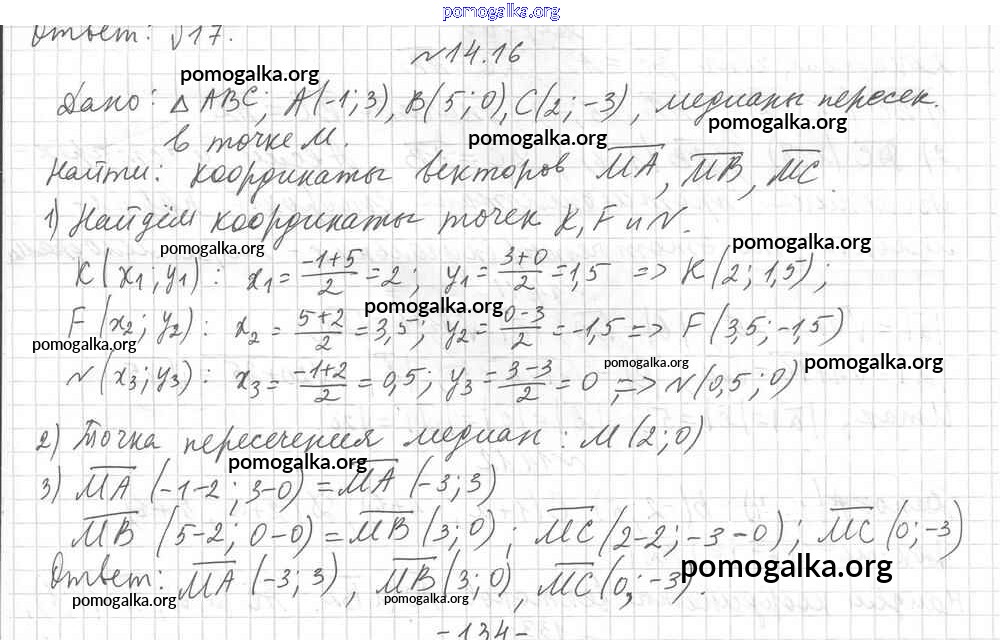 pomogalka.org
Ответ: √17.
№14.16
pomogalka.org
Дано: △ABC; A(-1; 3), B(5; 0), C(2; -3), медианы пересек.
pomogalka.org
в точке M. pomogalka.org
Найти: координаты векторов MA, MB, MC.
1) Найдём координаты точек K, F и N.
pomogalka.org pomogalka.org
K(x₁; y₁): x₁ = (-1+5)/2 = 2; y₁ = (3+0)/2 = 1,5 => K(2; 1,5);
pomogalka.org
F(x₂; y₂): x₂ = (5+2)/2 = 3,5; y₂ = (0-3)/2 = -1,5 => F(3,5; -1,5)
pomogalka.org pomogalka.org pomogalka.org
N(x₃; y₃): x₃ = (-1+2)/2 = 0,5; y₃ = (3-3)/2 = 0; => N(0,5; 0)
2) Точка пересечения медиан: M(2; 0)
pomogalka.org
3) MA(-1-2; 3-0) = MA(-3; 3)
MB(5-2; 0-0) = MB(3; 0); MC(2-2; -3-0); MC(0; -3)
pomogalka.org
Ответ: MA(-3; 3), MB(3; 0), MC(0; -3).
pomogalka.org pomogalka.org
-134-